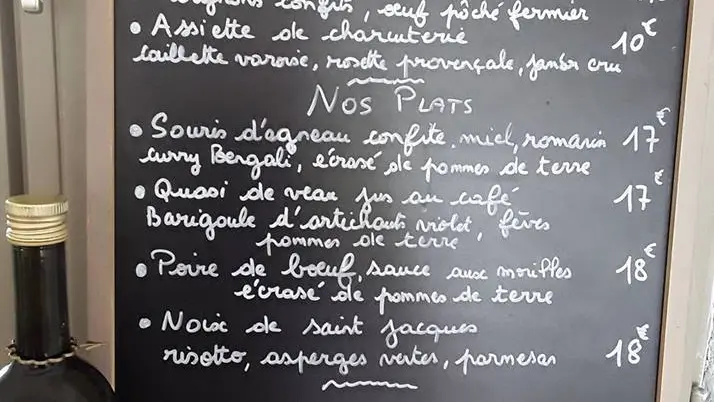 confits, œuf pôché fermier
• Assiette de charcuterie 10€
caillette varoise, rosette provençale, jambon cru
NOS PLATS
• Souris d'agneau confite, miel, romarin 17€
curry Bengali, écrasé de pommes de terre
• Quasi de veau jus au café 17€
Barigoule d'artichauts violet, fèves
pommes de terre
• Poire de bœuf, sauce aux morilles 18€
écrasé de pommes de terre
• Noix de saint jacques
risotto, asperges vertes, parmesan 18€